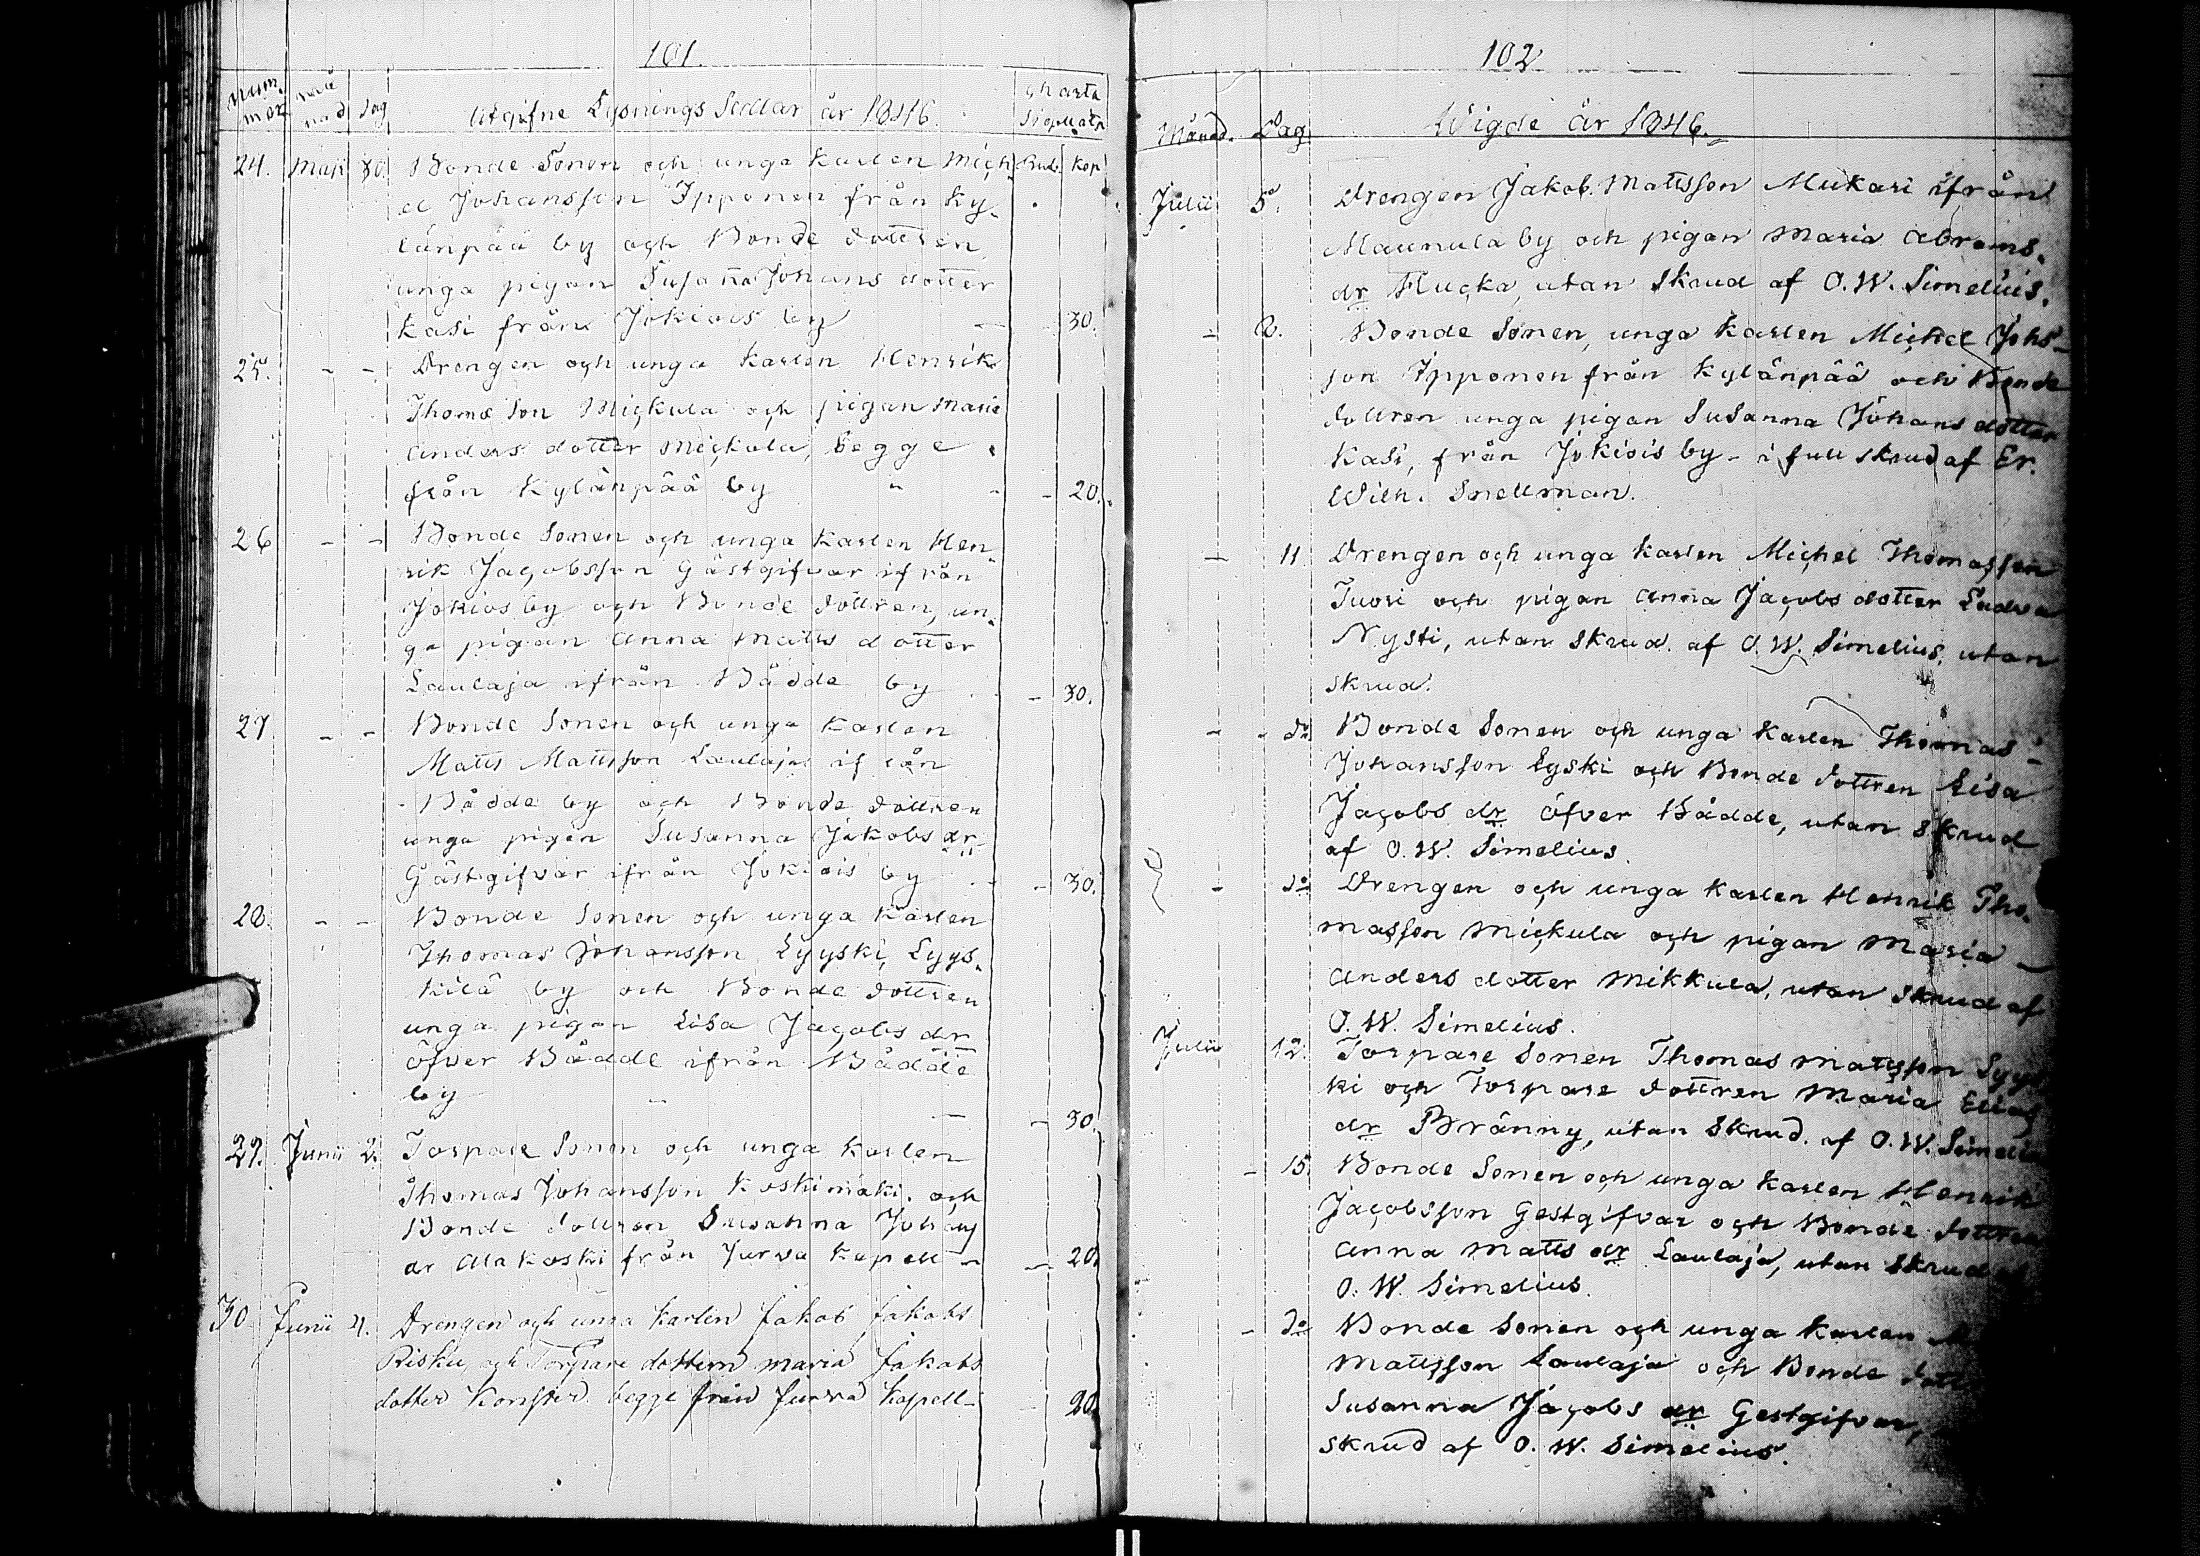 101.
Num mer
Måna nad
Dag
Utgifne Lysnings Sedlar år 1846.
Charta Sigillata
24. Maji 30. Bonde Sonen och unga Karlen Mich Rub. Kop
el Johansson Ipponen från Ky-
länpää by och Bonde dottren
unga pigan Susanna Johans dotter
Kasi från Jokiois by - - 30.
25. - - Drengen och unga Karlen Henrik
Thomæ Son Mickula och pigan Maria
Anders dotter Mickula, begge
från Kylänpää by - - 20.
26 - - Bonde Sonen och unga Karlen Hen-
rik Jacobsson Gästgifvar ifrån
Jokios by och Bonde dottren, un-
ga pigan Anna Matts dotter
Laulaja ifrån Bådde by - 30.
27 - - Bonde Sonen och unga Karlen
Matts Mattsson Laulaja ifrån
Bådde by och Bonde dottren
unga pigan Susanna Jakobs dr
Gästgifvar ifrån Jokiois by - 30.
28. - - Bonde Sonen och unga Karlen
Thomas Johansson Lyyski, Lyys-
kilä by och Bonde dottren
unga pigan Lisa Jacobs dr
Öfver Bådde ifrån Bådde
by - - 30.
29. Junii 2. Torpare Sonen och unga Karlen
Thomas Johansson Koskimäki, och
Bonde dottren Susanna Johans
dr Alakoski från Jurva Kapell - - 20.
30 Junii 4. Drengen och unga Karlen Jakob Jakobs
Risku och Torpare dottern Maria Jakobs
dotter begge från Jurva Kapell - 20.
102
Månad. Dag Wigde år 1846.
Julii 5. Drengen Jakob Mattsson Mukari ifrån
Maunula by och pigan Maria Abrams-
dr Flucka, utan Skrud af O. W. Simelius.
- 8. Bonde Sonen, unga Karlen Michel Johs-
son Ipponen från Kylänpää och Bonde
dottren unga pigan Susanna Johans dotter
Kasi, från Jokiois by - i full skrud af Er.
Wilh. Snellman.
- 11 Drengen och unga Karlen Michel Thomasson
Tuori och pigan Anna Jacobs dotter
Nysti, utan skrud. af O. W. Simelius, utan
skrud.
- - do Bonde Sonen och unga Karlen Thomas -
Johansson Lyski och Bonde dottren Lisa
Jacobs dr Öfver Bådde, utan skrud
af O. W. Simelius.
- do Drengen och unga Karlen Henrik Tho-
masson Mickula och pigan Maria -
Anders dotter Mikkula, utan skrud af
O. W. Simelius.
Julii 12. Torpare Sonen Thomas Mattsson Lyys
ki och Torpare dottren Maria Elias
dr Bränny, utan Skrud. af O. W. Simelius
- 15. Bonde Sonen och unga Karlen Henrik
Jacobsson Gestgifvar och Bonde dottren
Anna Matts dr Laulaja, utan Skrud af
O. W. Simelius.
- do Bonde Sonen och unga Karlen
Mattsson Laulaja och Bonde
Susanna Jacobs dr Gestgifvar,
skrud af O. W. Simelius.